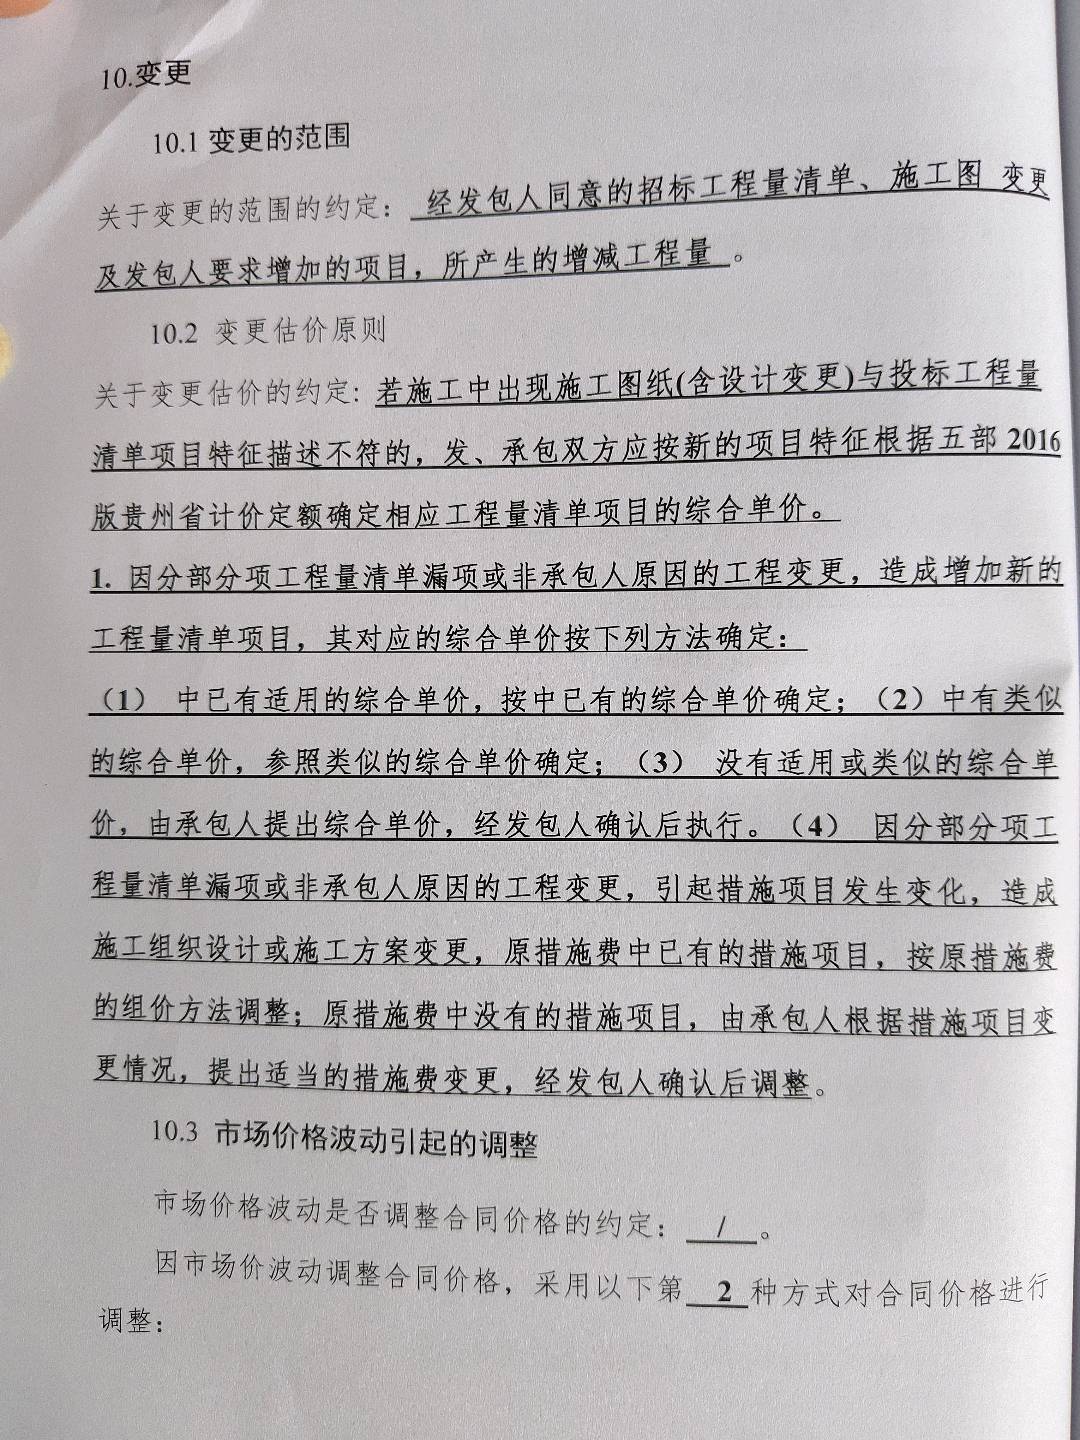 10.变更
10.1 变更的范围
关于变更的范围的约定： 经发包人同意的招标工程量清单、施工图 变更
及发包人要求增加的项目，所产生的增减工程量 。
10.2 变更估价原则
关于变更估价的约定: 若施工中出现施工图纸(含设计变更)与投标工程量
清单项目特征描述不符的，发、承包双方应按新的项目特征根据五部 2016
版贵州省计价定额确定相应工程量清单项目的综合单价。
1. 因分部分项工程量清单漏项或非承包人原因的工程变更，造成增加新的
工程量清单项目，其对应的综合单价按下列方法确定：
（1） 中已有适用的综合单价，按中已有的综合单价确定；（2）中有类似
的综合单价，参照类似的综合单价确定；（3） 没有适用或类似的综合单
价，由承包人提出综合单价，经发包人确认后执行。（4） 因分部分项工
程量清单漏项或非承包人原因的工程变更，引起措施项目发生变化，造成
施工组织设计或施工方案变更，原措施费中已有的措施项目，按原措施费
的组价方法调整；原措施费中没有的措施项目，由承包人根据措施项目变
更情况，提出适当的措施费变更，经发包人确认后调整。
10.3 市场价格波动引起的调整
市场价格波动是否调整合同价格的约定： / 。
因市场价波动调整合同价格，采用以下第 2 种方式对合同价格进行
调整：